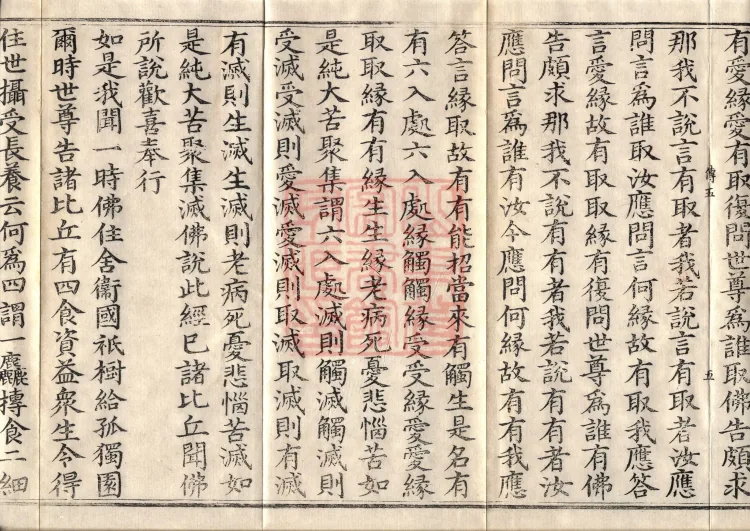 有愛緣愛有取復問世尊為誰取佛告頗求
那我不說言有取者我若說言有取者汝應
傅五
五
問言為誰取汝應問言何緣故有取我應答
言愛緣故有取取緣有復問世尊為誰有佛
告頗求那我不說有有者我若說有有者汝
應問言為誰有汝今應問何緣故有有我應
答言緣取故有有能招當來有觸生是名有
有六入處六入處緣觸觸緣受受緣愛愛緣
取取緣有有緣生生緣老病死憂悲惱苦如
是純大苦聚集謂六入處滅則觸滅觸滅則
受滅受滅則愛滅愛滅則取滅取滅則有滅
有滅則生滅生滅則老病死憂悲惱苦滅如
是純大苦聚集滅佛說此經已諸比丘聞佛
所說歡喜奉行
如是我聞一時佛住舍衞國祇樹給孤獨園
爾時世尊告諸比丘有四食資益衆生令得
住世攝受長養云何為四謂一麤摶食二細